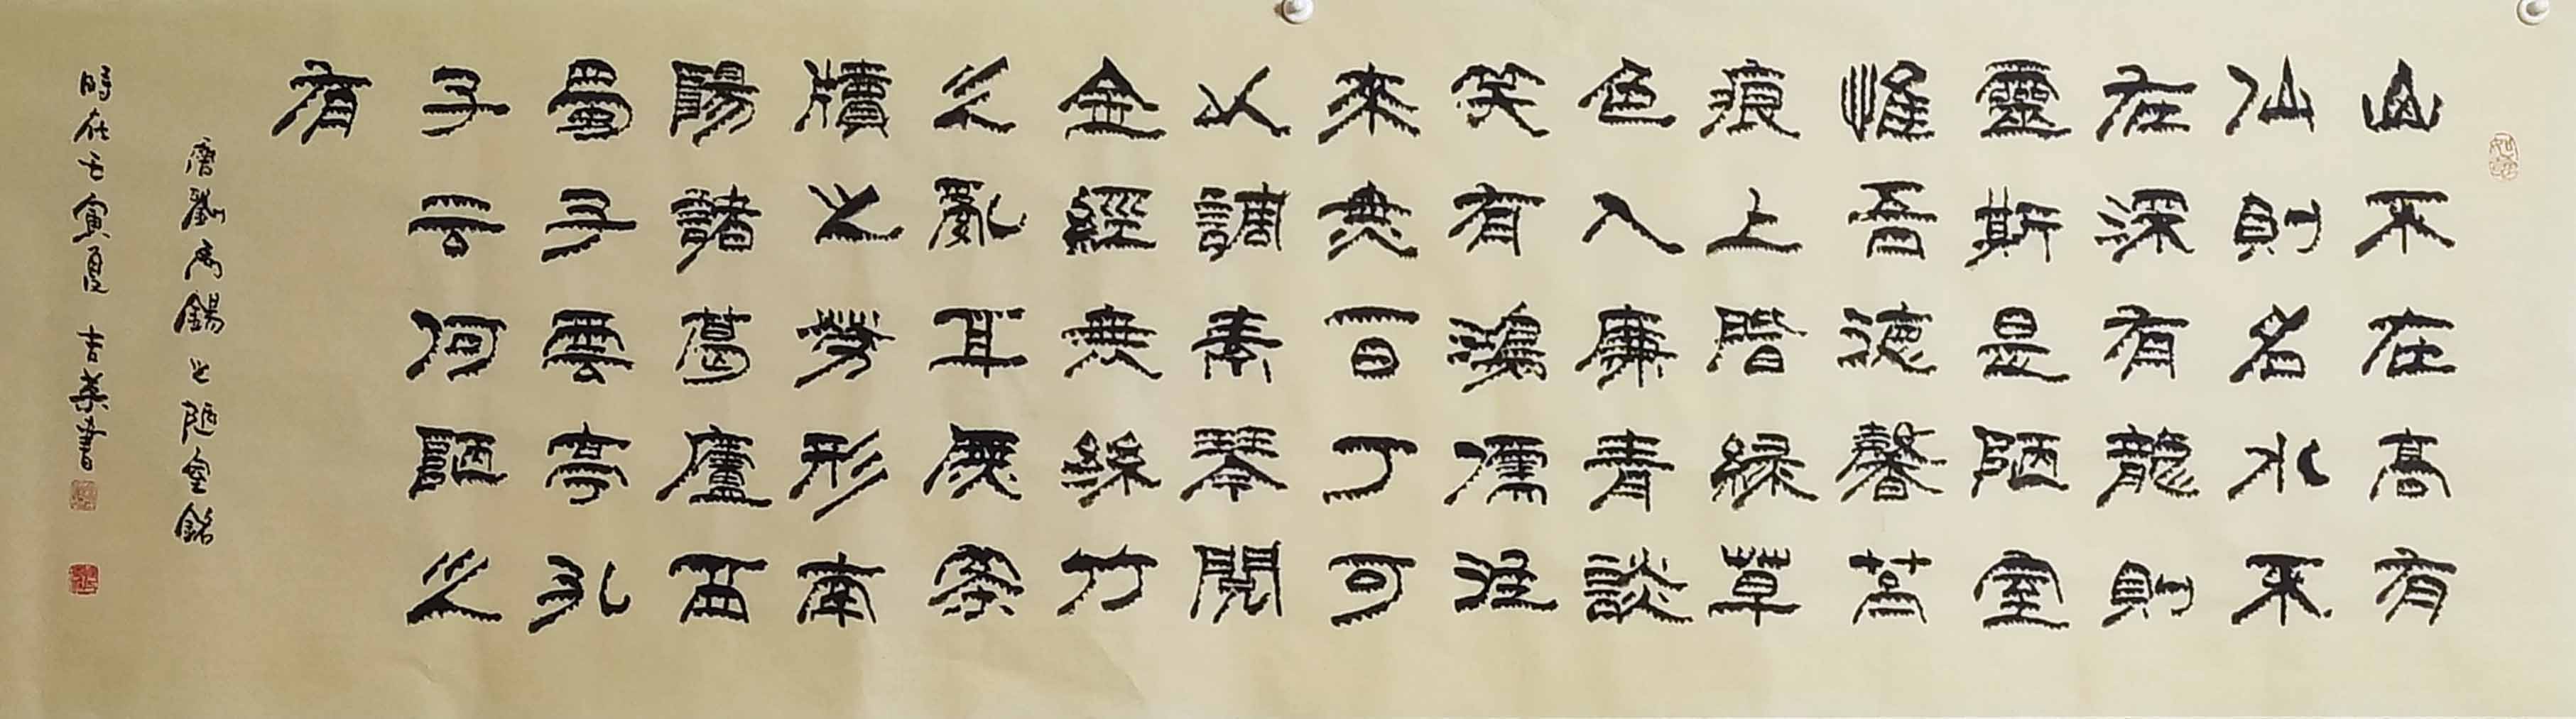 山不在高有
仙則名水不
在深有龍則
靈斯是陋室
惟吾德馨苔
痕上階綠草
色入廉青談
笑有鴻儒往
來無白丁可
以調素琴閱
金經無絲竹
之亂耳無案
牘之勞形南
陽諸葛廬西
蜀子雲亭孔
子云何陋之
有
唐劉禹錫之陋室銘
時在壬寅夏 吉英書